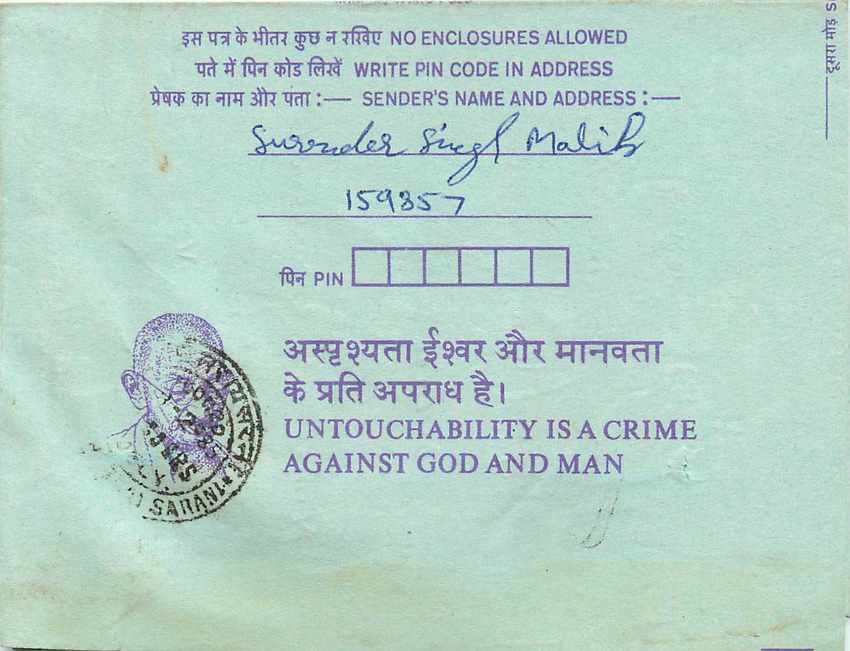 इस पत्र के भीतर कुछ न रखिए NO ENCLOSURES ALLOWED
पते में पिन कोड लिखें WRITE PIN CODE IN ADDRESS
प्रेषक का नाम और पता :— SENDER'S NAME AND ADDRESS :—
Surender Singh Malik
159357
पिन PIN
अस्पृश्यता ईश्वर और मानवता
के प्रति अपराध है।
UNTOUCHABILITY IS A CRIME
AGAINST GOD AND MAN
SARANI
दूसरा मोड़ S